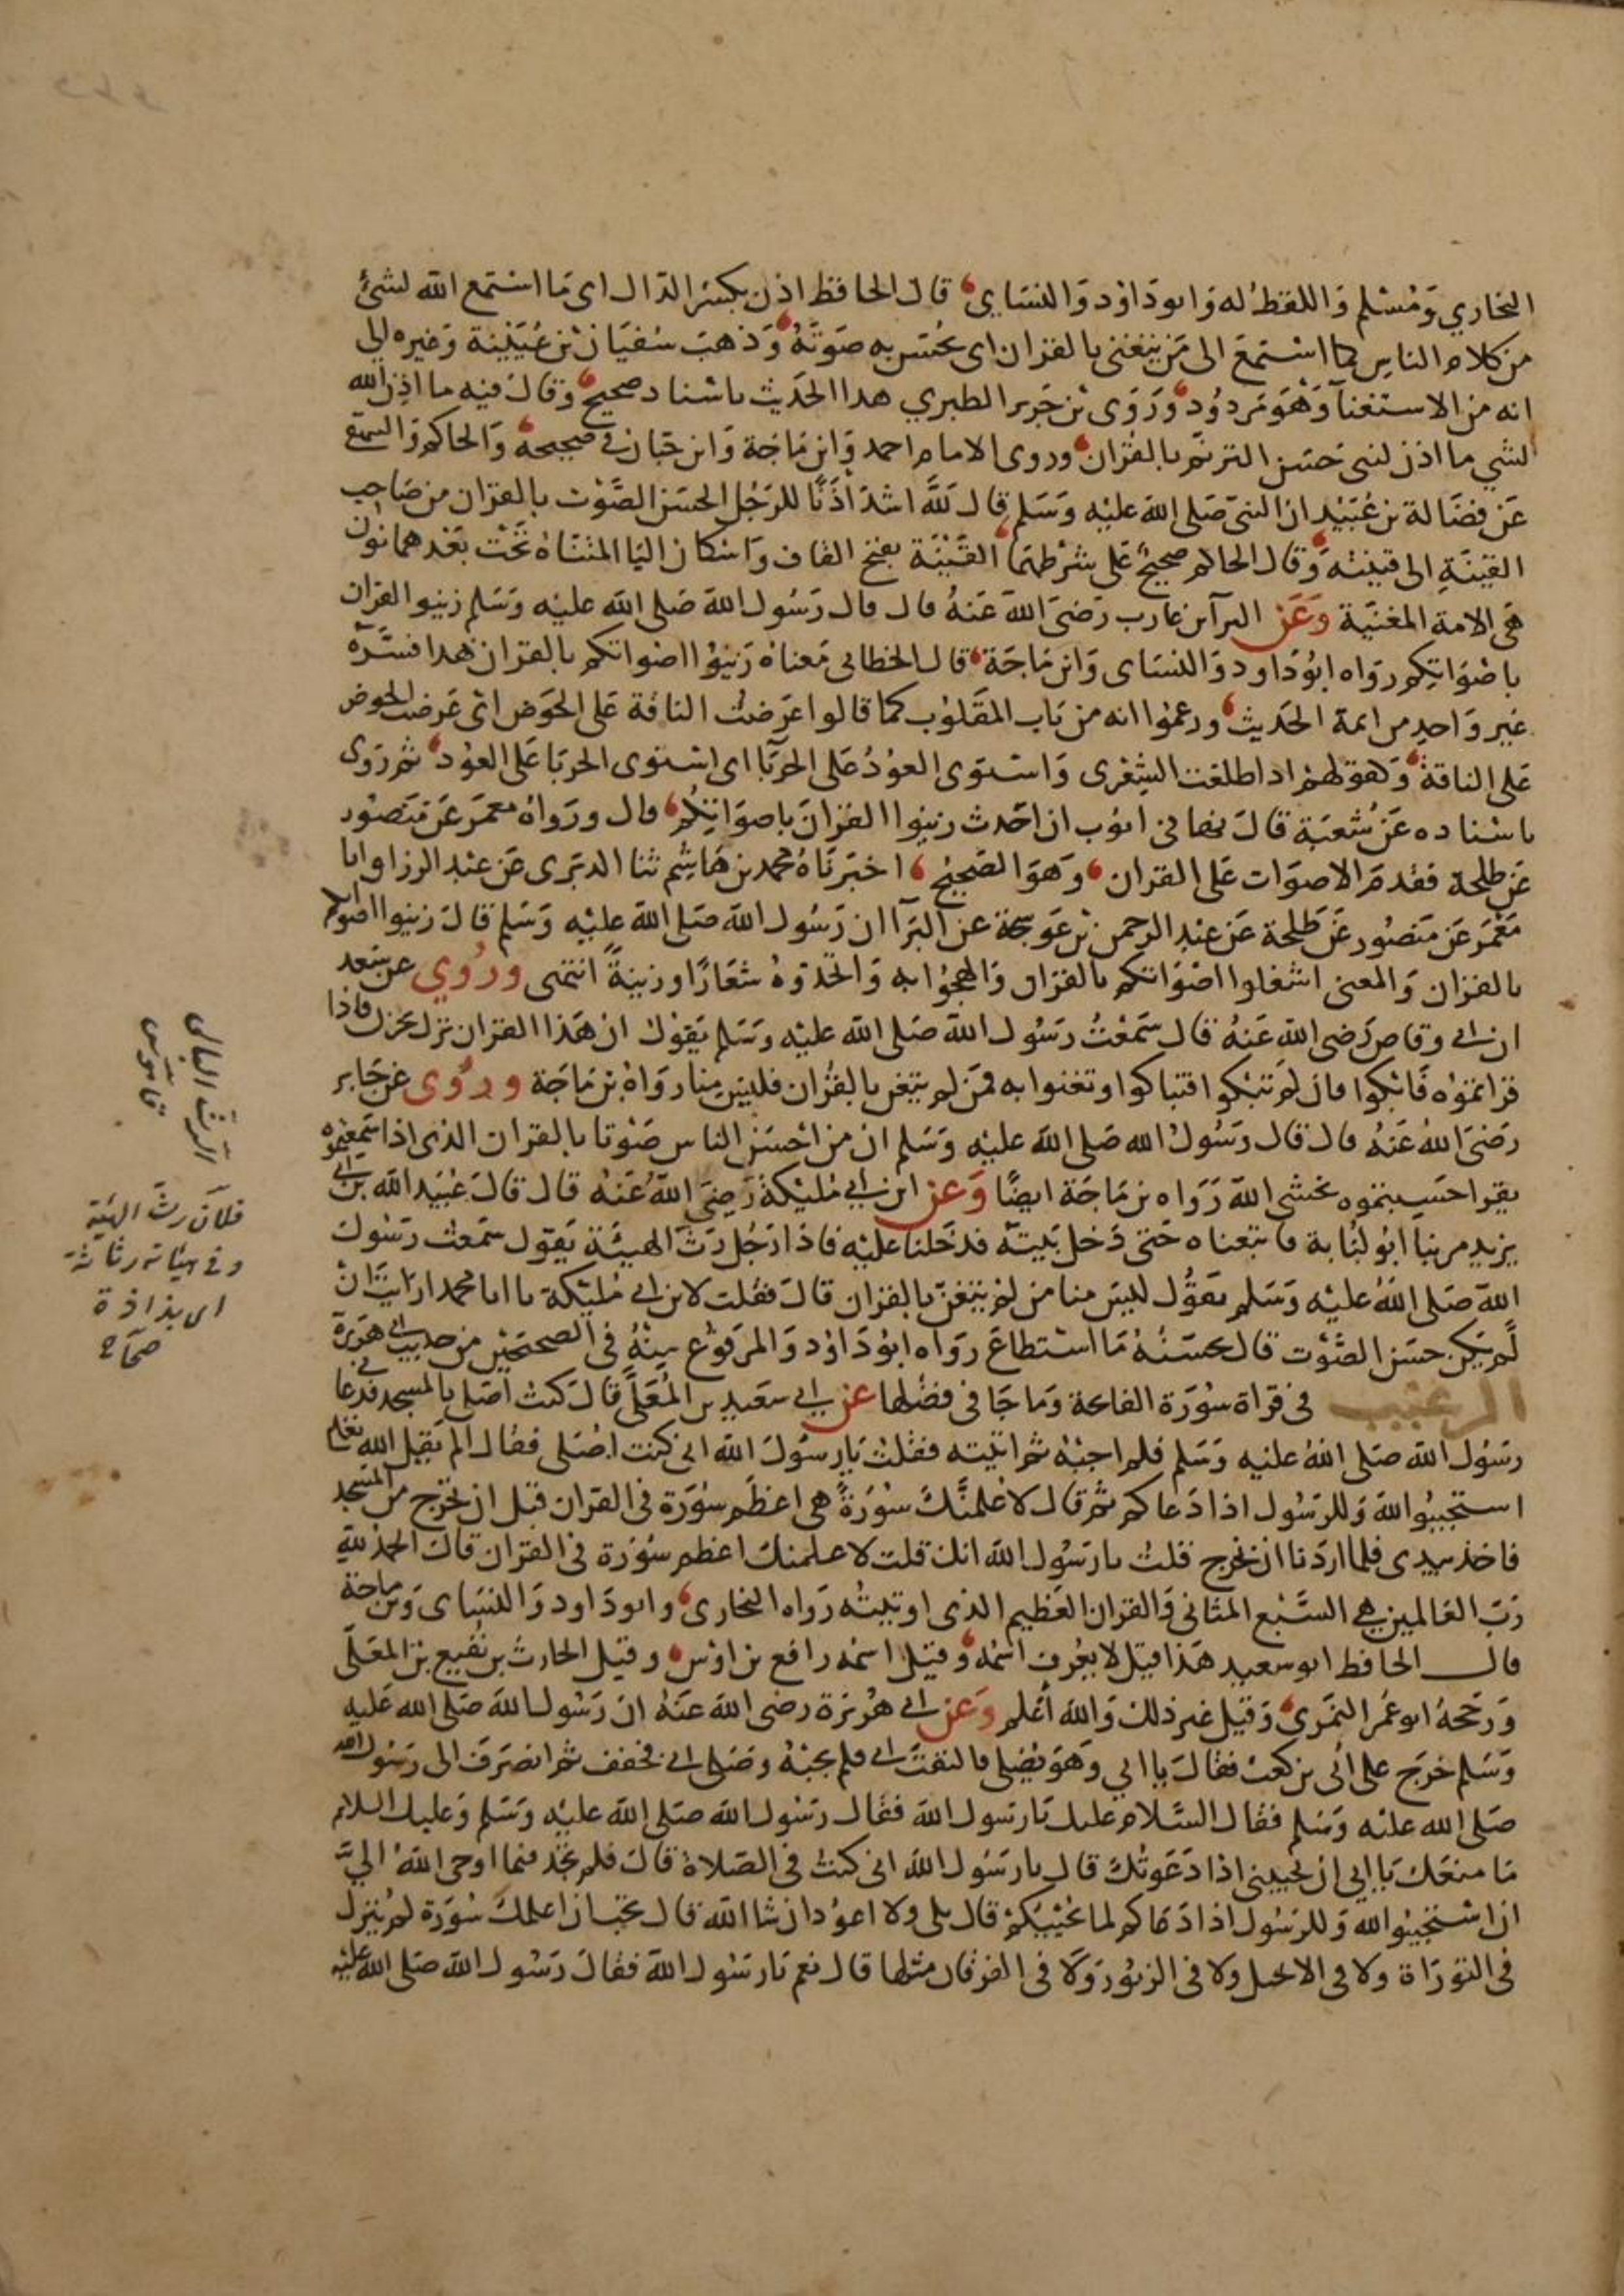 البخاري وَمُسْلم وَاللفظ له وَابوداوُد وَالنسَاي قال الحافظ اذن بكسر الذال اى مَا استمع الله لشئ
من كلام الناسِ كما استمَعَ الى مَن يتغنى بالقران اى يحُسّن به صَوتَهُ وَذهبَ سُفيَان بْن عُيَيْنة وَغيره الى
انه من الاستغنآ وَهْوَ مَردوُد وَرَوَى بْن جَرير الطبري هدا الحَديث باسْناد صحيح وَقالَ فيه ما اذِن الله
لشي ما اذن لنبى حَسَن الترنّم بالقرُان وروى الامام احمد وَابن مَاجَة وَابن حَبان فى صحيحهُ وَالحاكم وَالبيهقي
عَن فضَالة بن عُبَيْد ان النبىّ صَلى الله عليْه وَسَلم قال لَلّهُ اشدّ اَذَنًا للرّجُل الحسَن الصَّوْت بالقرْان من صَاحِب
القيْنَةِ الى قينته وَقال الحاكم صحيح عَلى شرْطهما القَيْنَة بفتح القاف وَاسْكان اليا المثنَاة تحْت بعْدهما نون
هَى الامة المغنيَة وَعَن البرآ بن عارب رَضىَ الله عَنهُ قال قال رَسُول الله صَلى الله عليْه وَسَلم زينوا القران
باصْوَاتِكم رواه ابوُدَاود وَالنسَاى وَابن مَاجَة قال الخطابى مَعناهُ زَينوُا اصْواتكم بالقران هدا فسَّرَهُ
غير وَاحدٍ من ايمة الحَديث وزعموُا انه من بَاب المقَلوُب كما قالوا عرَضتُ الناقة عَلى الحَوَض اىْ عَرضتُ الحوض
عَلى الناقة وَكقولهمْ ادا طلعَت الشِعْرى وَاستوَى العوُدُ عَلى الحربَا اى اسْتوَى الحربَا عَلى العوُد ثم رَوَى
باسْناده عَن شُعبَة قالَ نهانى ايوُب ان احَدث زينوُا القرْانَ باصوَاتِكم قال وروَاهُ معمَر عَن منصُور
عَن طلحة فقدمَ الاصوَات عَلى القرْان وَهوَ الصَحيْح اخبَرنَاهُ محمد بن هَاشِم ثنا الدبَرى عَن عبْد الرزاق انا
مَعْمَر عَن مَنصُور عَن طَلحة عَن عبْد الرحمن بْن عَوسَجة عن البَرآ ان رَسُول الله صَلى الله عليْه وَسَلم قالَ زينوا اصواتكم
بالقران وَالمعنى اشغلوا اصْوَاتكم بالقران وَالهجوُا به وَاتخّذوهُ شعَارًا وزينةً انتهى ورُوي عن سَعد
ابن ابى وقاص رَضى الله عَنهُ قال سَمعْتُ رَسُول الله صَلى الله عليْه وَسَلم يَقوُل ان هَذا القرْان نزل بحزن فاذا
قراتموُه فَابْكوا فان لمْ تبْكوا فتباكوا وتغنوا به فمَن لم يتغن بالقُران فليسَ منا رَوَاهُ بْن مَاجَة ورُوى عَن جَابر
رَضىَ اللهُ عَنهُ قال قال رَسُولُ الله صَلى الله عليْه وَسَلم ان من احْسَن الناس صَوْتا بالقران الذى اذا سَمعتموه
يقرا حَسِبتموه يخشى اللهَ رَوَاه بن مَاجَة ايضًا وَعن ابن ابي مُليْكة رَضِىَ اللهُ عَنهُ قال قالَ عُبَيْد الله بن ابى
يزيد مر بنا ابوُ لبُابة فاتبعناه حَتى دَخل بَيتهُ فدخَلنا عليْه فاذا رَجُل رَثّ الهيئَة يَقوّل سَمعْت رَسُول
الله صَلى اللهُ عليْه وَسَلم يقوُل ليسَ منا من لمْ يتغنّ بالقران قالَ فقلت لابن ابى مُليْكة يا ابا محمد ارَايتَ انْ
لَّم يَكن حسَن الصّوْت قال يحسَنُهُ مَا اسْتطاعَ رواه ابوُ دَاوُد وَالمرفوُع منِهُ فى الصحيحَيْن من حديث ابى هَريرَة
الترغيب في قراة سُورَة الفاتحة وَما جَا فى فضلها عن ابي سَعيد بن المُعَلَّى قالَ كنتُ اصَلى بالمسجد فدعَانى
رسُول الله صَلى اللهُ عليْه وَسَلم فلم اجبْهُ ثم اتيته فقلتْ يَا رسُولَ الله انى كنت اصَلى فقال الم يَقل الله تعالى
استجيبُوا للهَ وَللرسُول اذا دَعاكم ثم قال لاعلمنَّكَ سُورَةً هى اعظم سوُرَة فى القرْان قبْل ان تخرج من المسْجد
فاخذ بيدى فلما ارَدنا ان نخرج قلتُ يا رَسُول الله انك قلت لاعلمنك اعظم سوُرَة فى القرْان قالَ الحمدُ للهِ
رَبّ العَالمينِ هي السَّبْع المثانى وَالقران العَظيم الذى اوتيتُه رَواه البخارى وابودَاود وَالنسَاى وَبن ماجة
قال الحافظ ابوسعيد هَذا قيل لا يعُرف اسْمُه وَقيل اسمُه رافع بن اوْس وقيل الحارث بن نُفيع بْن المعَلَّى
وَرَجّحهُ ابوعُمر النمَري وَقيل غير ذلك وَالله اَعْلم وَعَن ابي هُرَيْرَة رضى الله عَنهُ ان رَسُول الله صَلى الله عَليْه
وَسَلم خرَجَ على اُبى بن كعبٍ فقالَ يا ابي وَهوَ يُصَلى فالتفتَ ابى فلم يجبْهُ وصَلى ابى فخفف ثم انصَرفَ الى رَسُول الله
صَلى الله عليْه وَسَلم فقال السَّلام عليك يَا رسَول اللهَ فقال رسُول الله صَلى الله عليْه وَسَلم وَعليك السلام
مَا منعَك يَا ابي ان تجُيبنى اذا دَعَوتُكَ قال يا رسَوُل اللهَ انى كنتُ فى الصَلاة قالَ فلم تجدْ فيما اوحى اللهُ اليَّ
ان اسْتجيبُوا للهِ وَللرسُول اذا دَعَاكم لما يحُييْكمْ قال بلى ولا اعوُد ان شا الله قال تحُب ان اعلمك سُورَة لمْ يُنزل
فى التورَاة ولا فى الانجيل ولا فى الزبُور وَلا فى الفرقان مثلها قال نعم يَا رسَوُل اللهَ فقالَ رَسُول اللهَ صَلى الله عَليْه
الرث البالى
قاموس
فلان رث الهيئة
وفى هيئاته رثاثة
اى بذاذة
صحاح